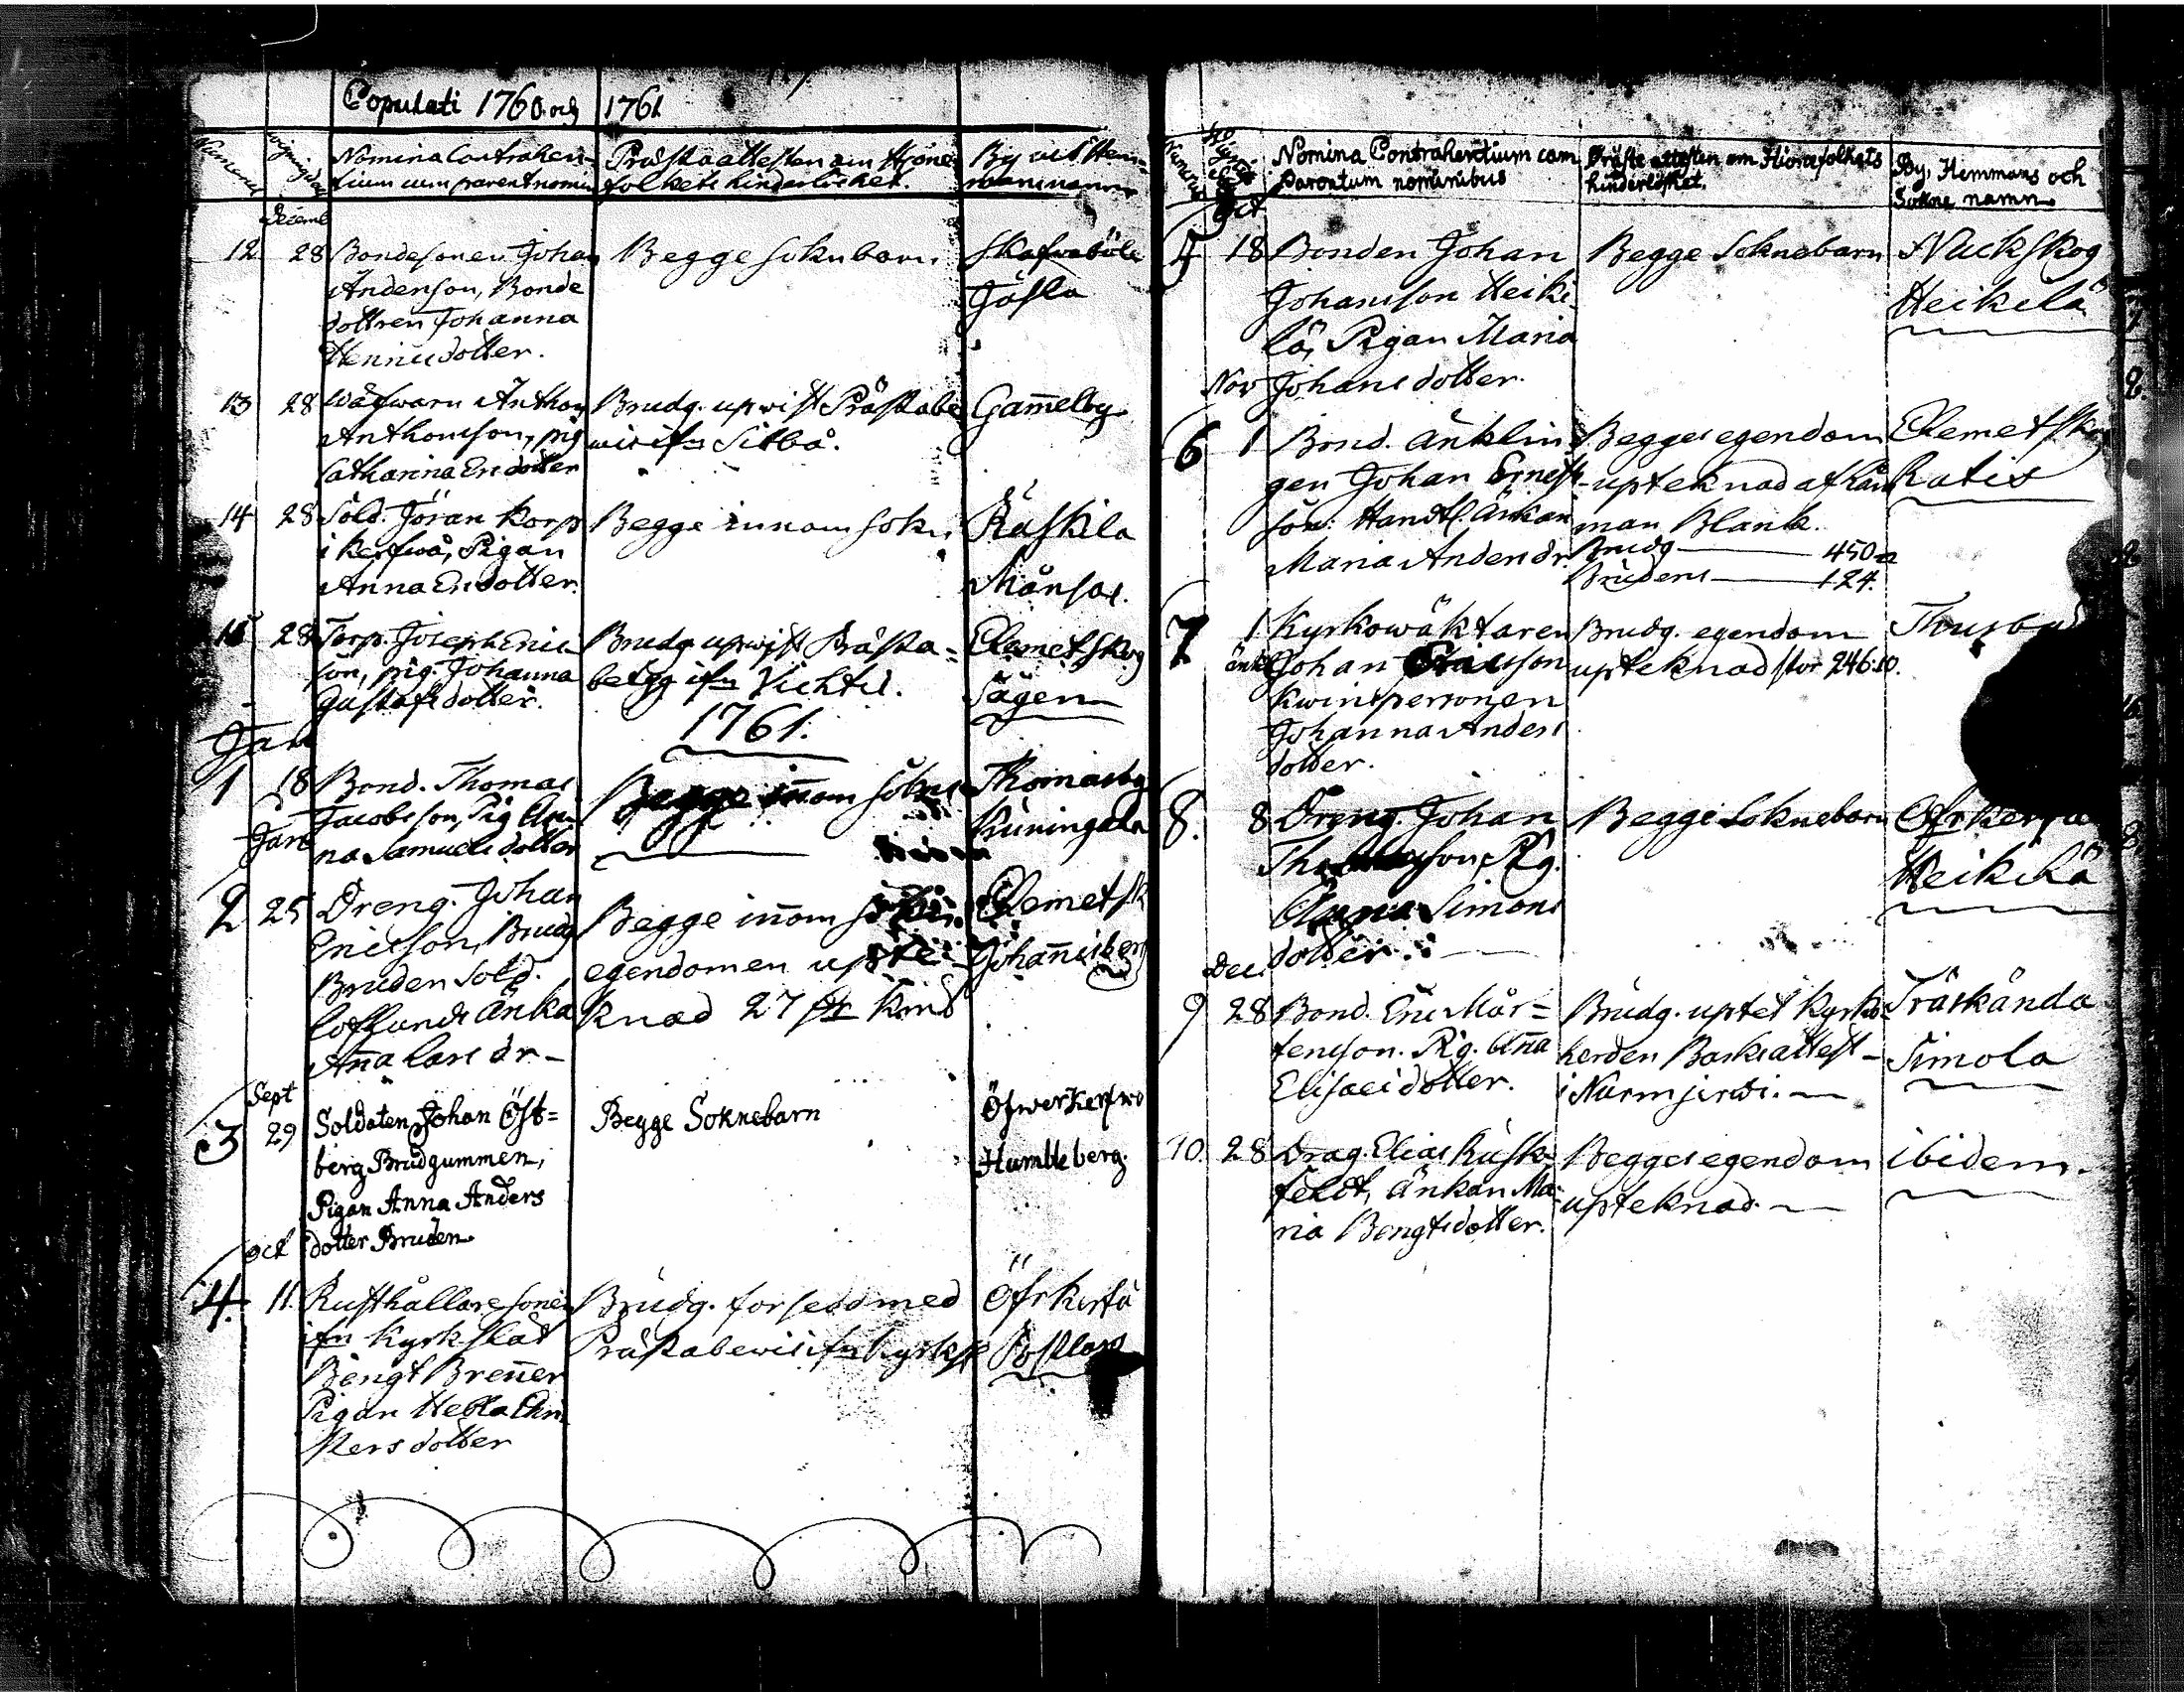 Copulati 1760 och 1761
Numerus
vigningsdag
Nomina Contrahen-
tium cum parent nomin
Prästaattesten om Hjone-
folkets hinderlöshet.
By och Hem-
mans namn
Decemb
12 28 Bondesonen Johan
Andersson, Bonde
dottren Johanna
Henricsdotter.
Begge soknbarn
Skafvaböle
Jösla
13 28 Wäfwarn Anthon
Anthonsson, pig
Catharina Ersdotter
Brudg. upvist Prästabe
wis ifn Sibbå.
Gam̄elby
14 28 Sold. Jöran Korp
i Kerfwå, Pigan
Anna Ersdotter.
Begge innom sokn
Räskila
Månsas.
15 28 Torp. Joseph Erics
son, pig. Johanna
Gustafsdotter.
Brudg upwist Prästa-
betyg ifn Vichtis.
Clemetskog
Sägen
1761.
Jan
1 18 Bond. Thomas
Jacobsson, Pig An-
na Samuelsdotter
Begge in̄om sokn
Thomasby
Kuningala
Jan
2 25 Dreng. Johan
Ericsson, Brudg
Bruden Sold.
Loflunds Änka
An̄a Lars dr-
Begge in̄om
egendomen upte-
knad 27 ptr Kmt
Clemetsk
Johan̄isberg
Sept
3 29 Soldaten Johan Öst-
berg Brudgummen,
Pigan Anna Anders
dotter Bruden.
Begge Soknebarn
Öfwerkerfwo
Humbleberg.
oct
4. 11. Rusthållaresonen
ifn Kyrkslät
Bengt Bren̄er
Pigan Hebla Chri
stersdotter
Brudg. forsedd med
Prästabewis ifn Kyrksl
Öfrkerfå
Postlars
Numerus
Nomina Contrahentium cum
Parentum nominibus
Präste attesten om Hionefolkets
hinderlöshet.
By, Hemmans och
Sokne namn
Oct
5 18 Bonden Johan
Johansson Heiki-
lä, Pigan Maria
Johansdotter.
Begge Soknebarn
Nackskog
Heikilä
Nov
6 1 Bond. änklin
gen Johan Ernst-
son: Handtl. Änkan
Maria Anders dr.
Begges egendom
upteknad af Län
man Blank.
Brudg — 450
Brudens — 124.
Clemetskog
Ratis
7 1 Kyrkowäktaren
änkl Johan Ericsson
Kwinspersonen
Johanna Anders
dotter.
Brudg. egendom
upteknad stor 246:10.
Thusby
8. 8 Dreng. Johan
Pig.
Anna Simons
dotter.
Begge Soknebarn
Öfrkerfå
Heikilä
Dec
9 28 Bond. Eric Mår-
tensson. Pig. An̄a
Elisaeidotter.
Brudg. uptet Kyrko-
herden Barks attest-
i Nurmjerwi.
Träskända
Simola
10. 28 Drag. Elias Rusk
feldt, Änkan Ma-
ria Bengtsdotter.
Begges egendom
upteknad.
ibidem.